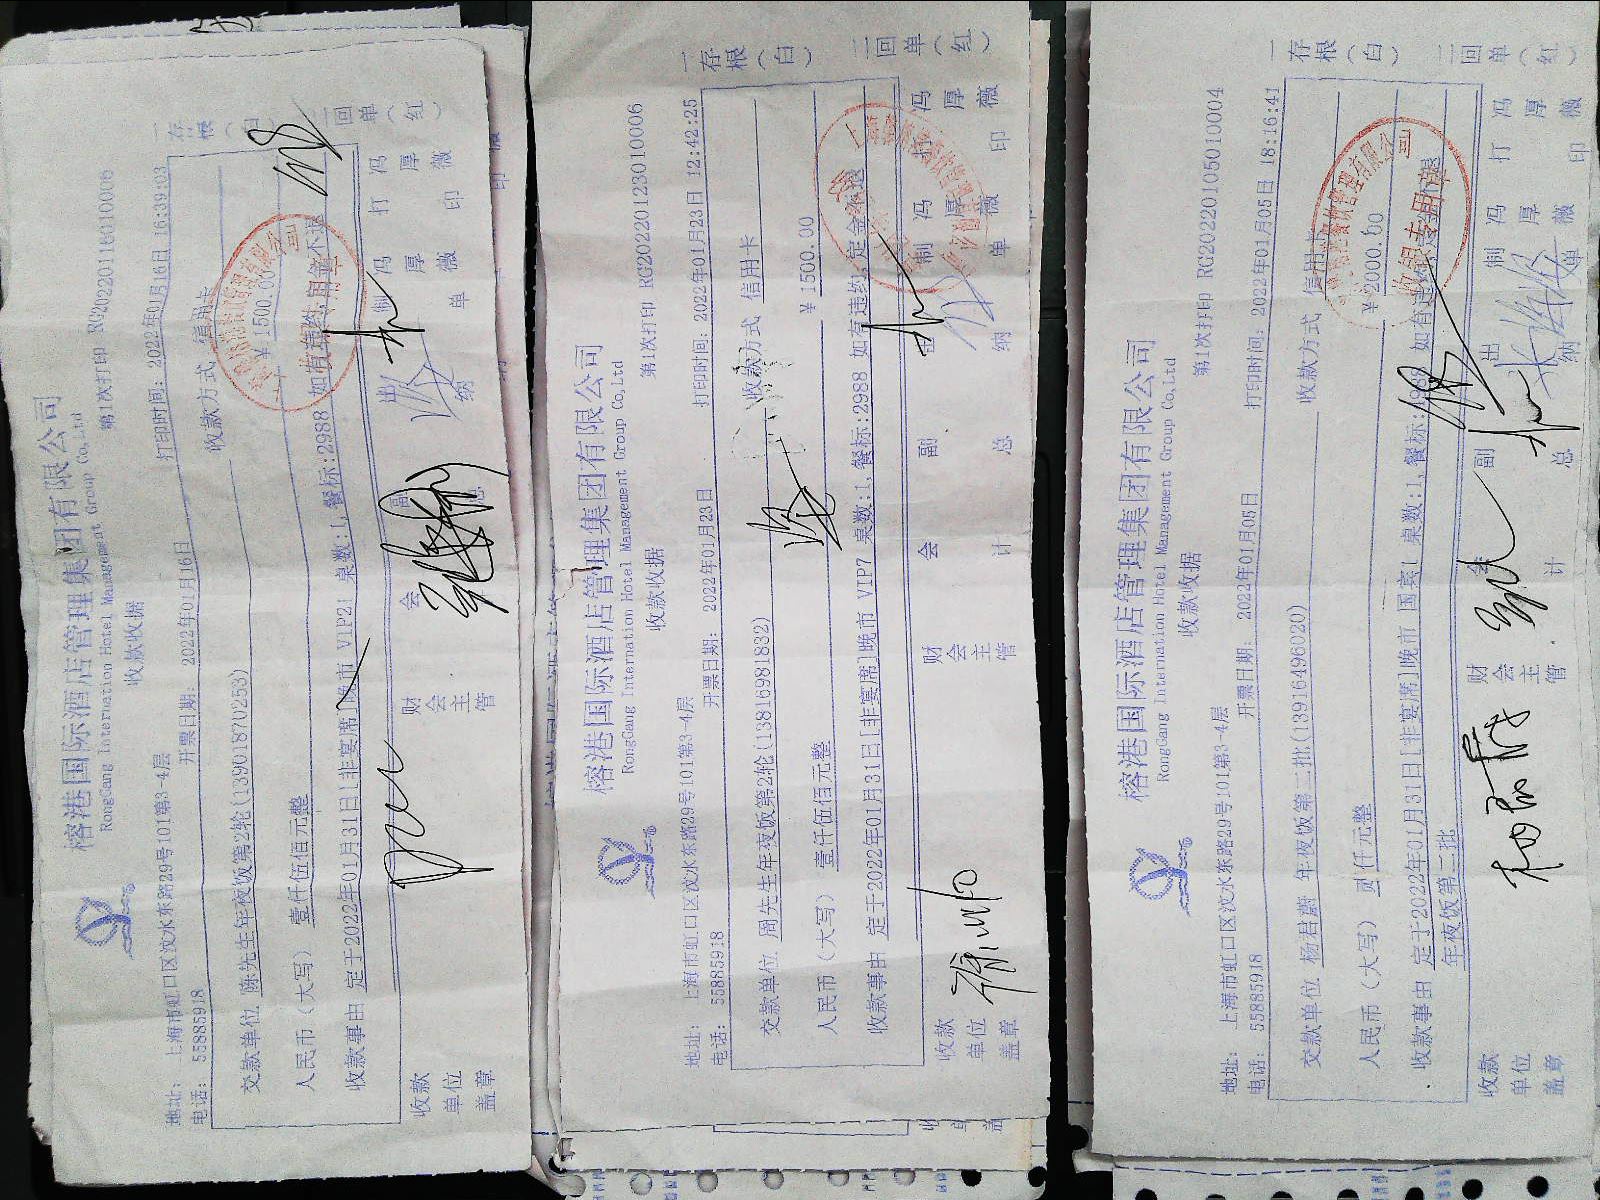 榕港国际酒店管理集团有限公司
RongGang Internation Hotel Management Group Co,Ltd
收款收据
第1次打印 RG20220116010006
地址: 上海市虹口区汶水东路29号101第3-4层
电话: 55885918
开票日期: 2022年01月16日
打印时间: 2022年01月16日 16:39:03
交款单位 陈先生年夜饭第2轮(13901870253)
收款方式 信用卡
人民币（大写） 壹仟伍佰元整
￥1500.00
收款事由 定于2022年01月31日[非宴席]晚市 VIP21 桌数:1,餐标:2988 如有违约,定金不退
收款单位盖章
财会主管
会
副总
出纳
制单
冯厚薇
打印
冯厚薇
一存根（白）
二回单（红）
榕港国际酒店管理集团有限公司
RongGang Internation Hotel Management Group Co,Ltd
收款收据
第1次打印 RG20220123010006
地址: 上海市虹口区汶水东路29号101第3-4层
电话: 55885918
开票日期: 2022年01月23日
打印时间: 2022年01月23日 12:42:25
交款单位 周先生年夜饭第2轮(13816981832)
收款方式 信用卡
人民币（大写） 壹仟伍佰元整
￥1500.00
收款事由 定于2022年01月31日[非宴席]晚市 VIP7 桌数:1,餐标:2988 如有违约,定金不退
收款单位盖章
财会主管
会计
副总
纳
制单
冯厚薇
打印
冯厚薇
一存根（白）
二回单（红）
榕港国际酒店管理集团有限公司
RongGang Internation Hotel Management Group Co,Ltd
收款收据
第1次打印 RG20220105010004
地址: 上海市虹口区汶水东路29号101第3-4层
电话: 55885918
开票日期: 2022年01月05日
打印时间: 2022年01月05日 18:16:41
交款单位 杨君蔚 年夜饭第二批(1391649620)
收款方式 信用卡
人民币（大写） 贰仟元整
￥2000.00
收款事由 定于2022年01月31日[非宴席]晚市 国宾1 桌数:1,餐标: 如有违约,定金不退
年夜饭第二批
收款单位盖章
财会主管
会计
副总
出纳
制单
冯厚薇
打印
冯厚薇
一存根（白）
二回单（红）
收银专用章